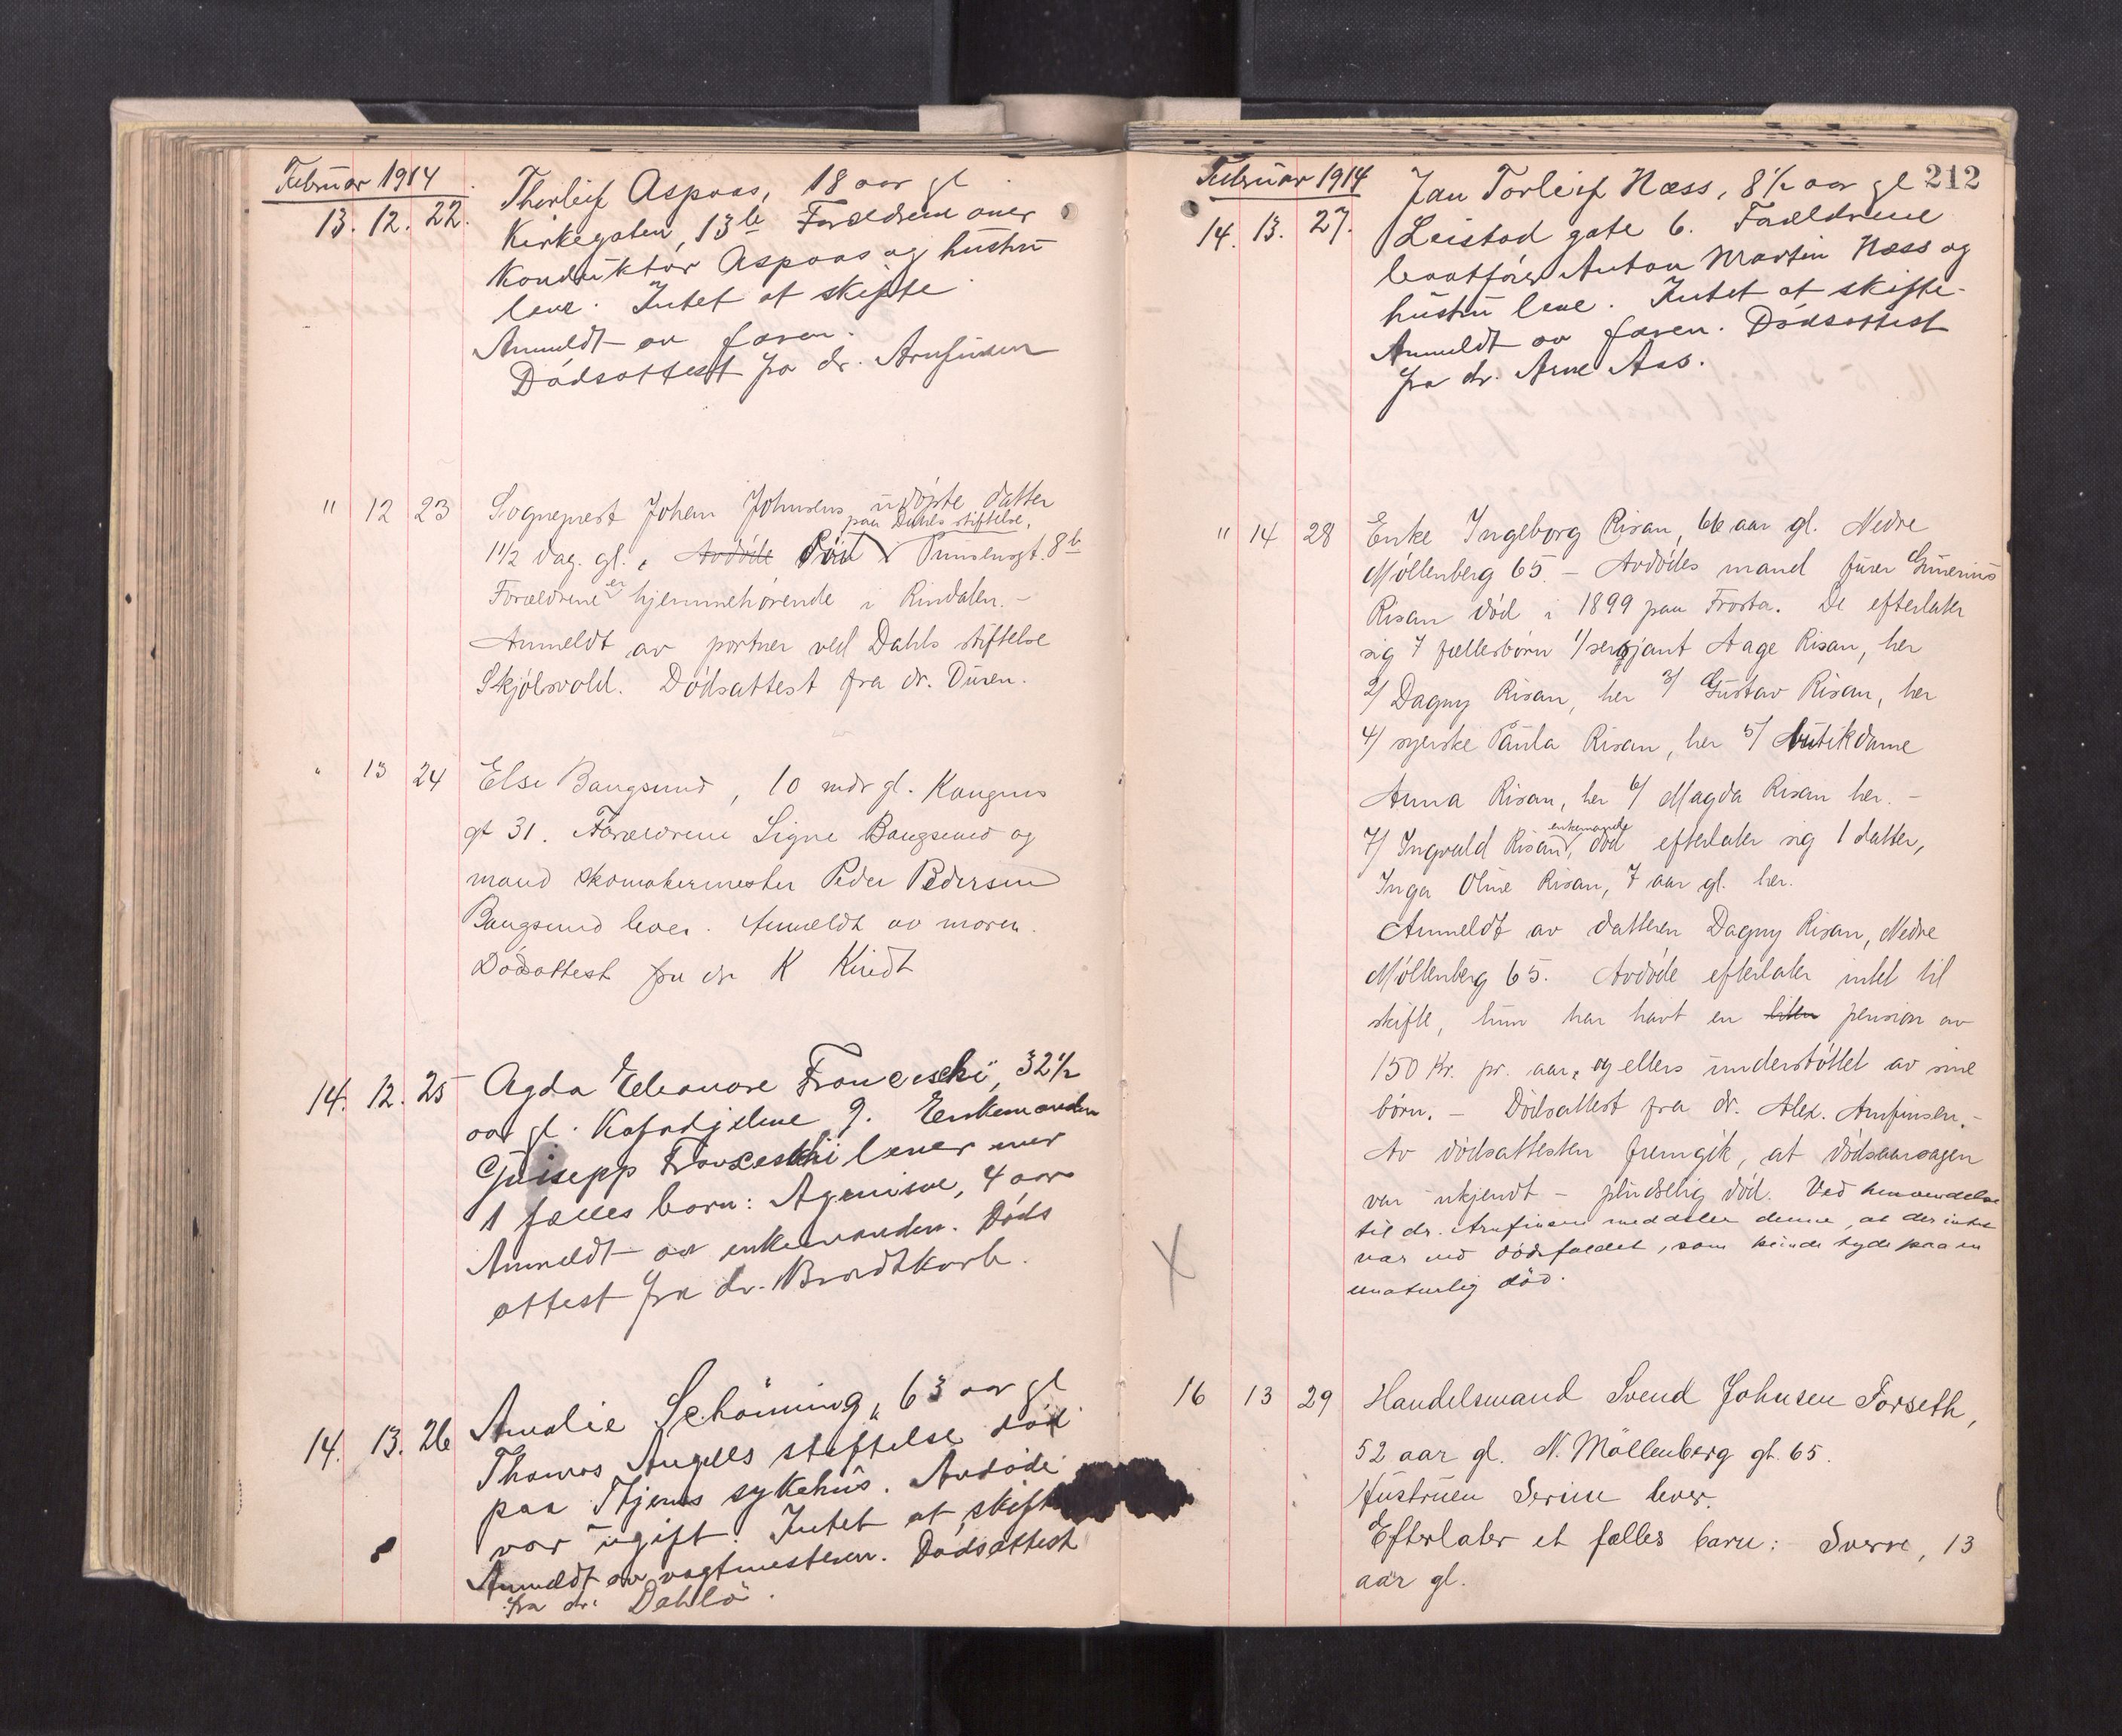 Februar 1914
13. 12. 22. Thorleif Aspaas, 18 aar gl.
Kirkegaten, 13 b Forældrene
Konduktør Aspaas og hustru
leve. Intet at skifte.
Anmeldt av faren.
Dødsattest fra dr. Arnfinsen
" 12 23 Sogneprest Johan Johnsens udøpte datter
paa Dahls stiftelse,
1 1/2 dag. gl., Avdøde Død i Prinsensgt. 8 b
Forældrene er hjemmehørende i Rindalen. -
Anmeldt av portner ved Dahls stiftelse
Skjølsvold. Dødsattest fra dr. Düsen.
" 13 24 Else Bangsund, 10 mdr gl. Kongens
gt 31. Forældrene Signe Bangsund og
mand skomakermester Peder Pedersen
Bangsund lever. Anmeldt av moren.
Dødsattest fra dr K Kindt
14. 12. 25 Agda Eleonore Franceschi, 32 1/2
aar gl. 9. Enkemanden
Guisepp Franceschi lever med
1 fælles barn: 4 aar
Anmeldt av enkemanden. Døds
attest fra dr. Brodtkorb.
14. 13. 26 Amalie Schönning, 63 aar gl
Thomas Angells stiftelse død
paa sykehus. Avdøde
var ugift. Intet at skifte
Anmeldt av vagtmesteren. Dødsattest
fra dr. Dahlø.
212
Februar 1914
14. 13. 27. Jan Torleif Næss, 8 1/2 aar gl
Leistad gate 6. Forældrene
baatfører Anton Martin Næss og
hustru leve. Intet at skifte.
Anmeldt av faren. Dødsattest
fra dr. Arne Aas.
" 14 28 Enke Ingeborg Risan, 66 aar gl. Nedre
Møllenberg 65. - Avdødes mand furer Gunerius
Risan død i 1899 paa Frosta. De efterlater
sig 7 fællesbørn 1/ sersjant Aage Risan, her
2/ Dagny Risan, her 3/ Gustav Risan, her
4/ syerske Paula Risan, her 5/ butikdame
Anna Risan, her 6/ Magda Risan her. -
enkemand
7/ Ingvald Risan, død efterlater sig 1 datter,
Inga Oline Risan, 7 aar gl. her.
Anmeldt av datteren Dagny Risan, Nedre
Møllenberg 65. Avdøde efterlater intet til
skifte, hun har havt en liten pension av
150 kr. pr. aar, og ellers understøttet av sine
børn. - Dødsattest fra dr. Alex. Arnfinsen. -
Av dødsattesten fremgik, at dødsaarsagen
var ukjendt - pludselig død. Ved henvendelse
til dr. Arnfinsen meddeler denne, at der intet
var ved dødsfaldet, som kunde tyde paa en
unaturlig død.
X
16 13 29 Handelsmand Svend Johnsen Forseth,
52 aar gl. N. Møllenberg gt. 65.
Hustruen Serine lever.
Efterlater et fælles barn: Sverre, 13
aar gl.